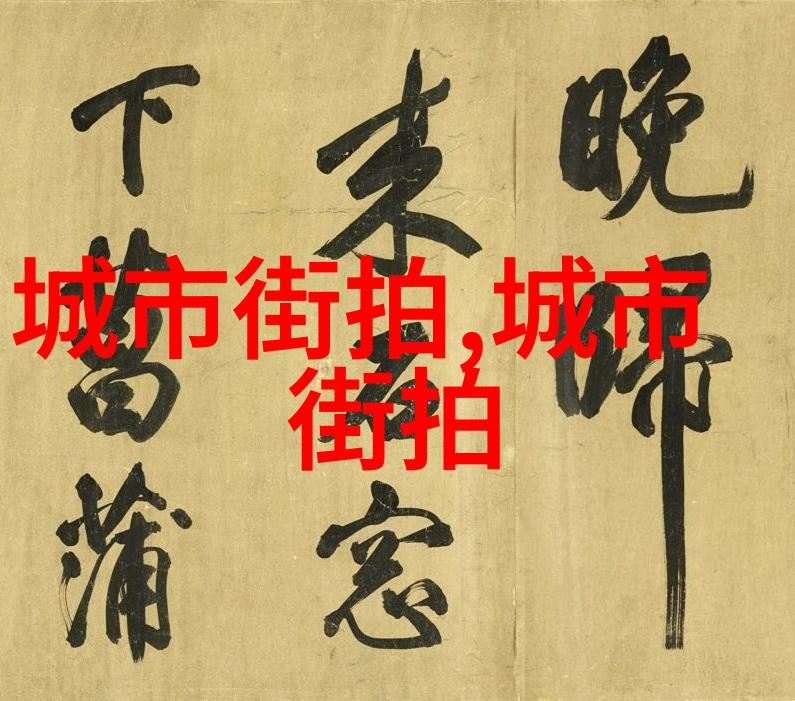 城市街拍,城市
街拍
晚帰
来窓
下菖蒲